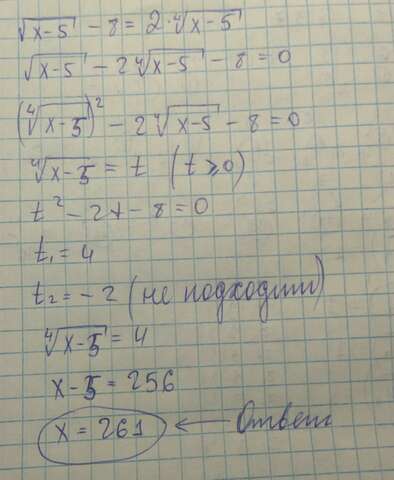 √x-5 - 8 = 2·∜x-5
√x-5 - 2∜x-5 - 8 = 0
(∜x-5)² - 2∜x-5 - 8 = 0
∜x-5 = t (t ⩾ 0)
t² - 2t - 8 = 0
t₁ = 4
t₂ = -2 (не подходит)
∜x-5 = 4
x-5 = 256
x = 261 ← Ответ